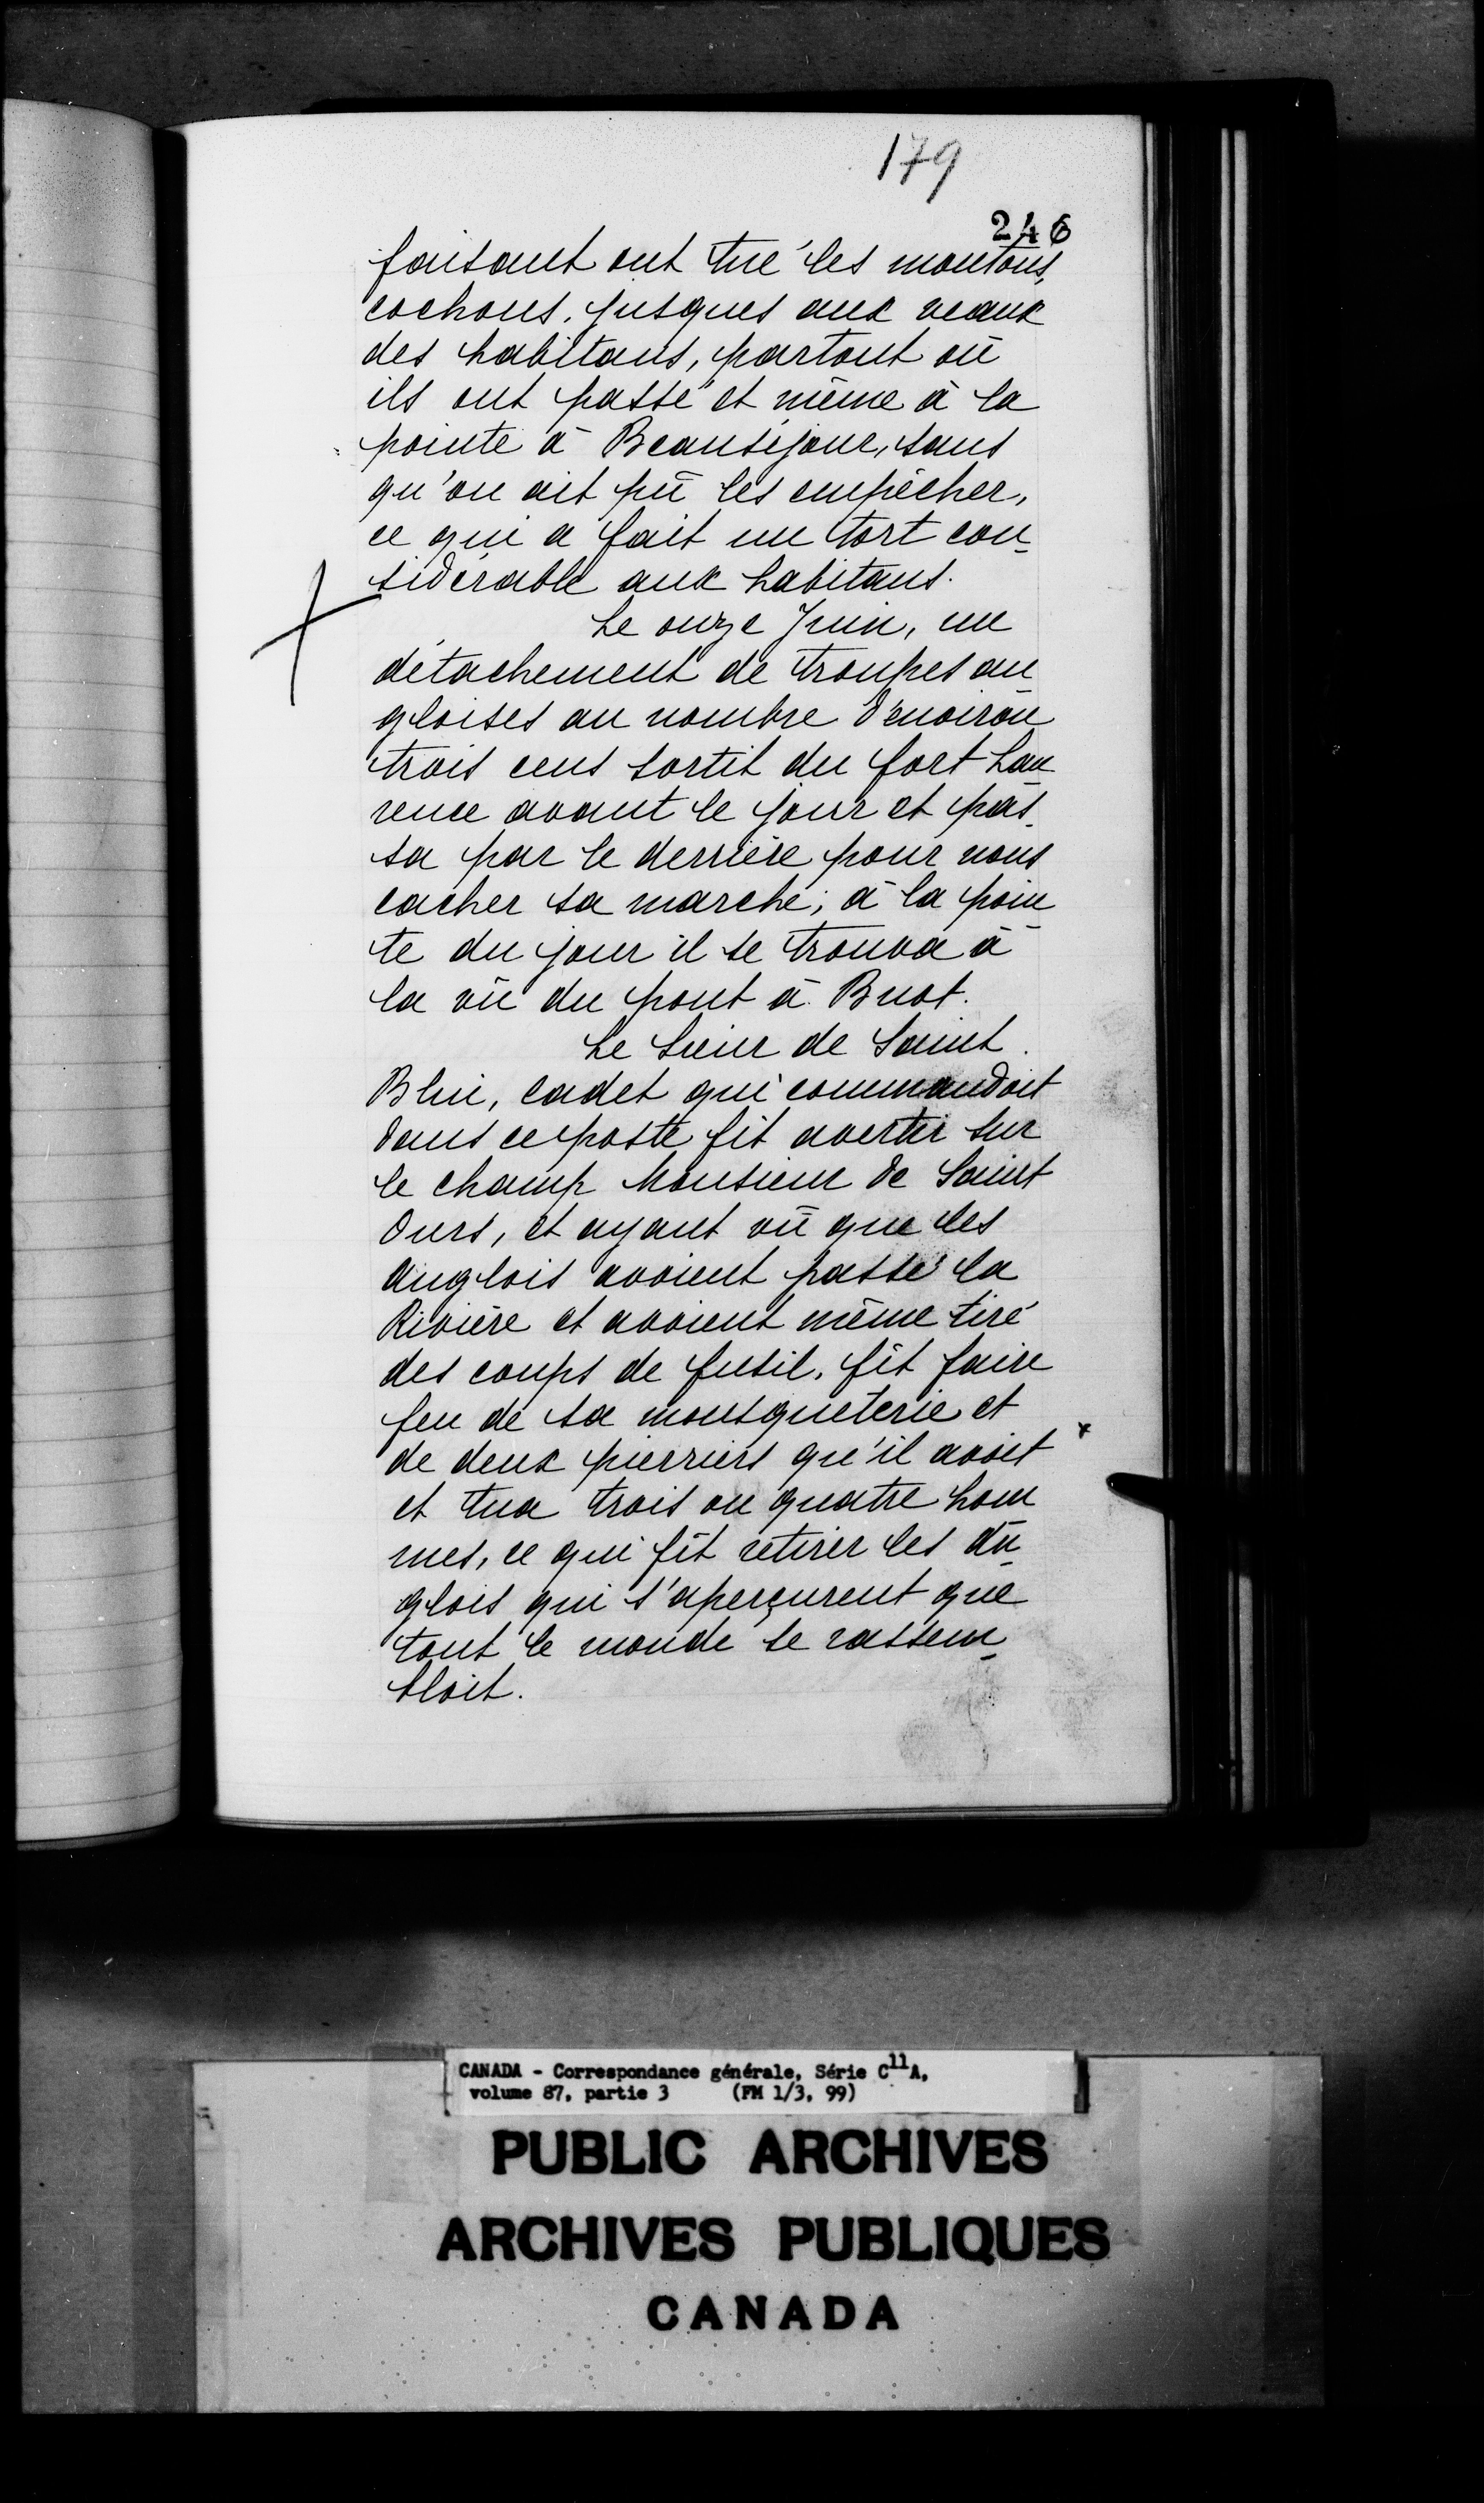 179
246
faisant ont tué les moutons,
cochons, jusques aux veaux
des habitans, partout où
ils ont passé et même à la
pointe à Beauséjour, sans
qu'on ait pû les empêcher,
ce qui a fait un tort con-
sidérable aux habitans.
Le onze Juin, un
détachement de troupes an-
gloises au nombre d'environ
trois cens sortit du fort Lau-
rence avant le jour et pas-
sa par le derrière pour nous
cacher sa marche; à la poin-
te du jour il se trouva à
la vû du pont à Buot.
Le Sieur de Saint
Blui, cadet qui commandoit
dans ce poste fit avertir sur
le champ Monsieur de Saint
Ours, et ayant vû que les
Anglois avoient passé la
Rivière et avoient même tiré
des coups de fusil, fit faire
feu de sa mousqueterie et
de deux pierriers qu'il avoit
et tua trois ou quatre hom
mes, ce qui fit retirer les An-
glois qui s'aperçurent que
tout le monde se rassem-
bloit.
CANADA - Correspondance générale, Série C11A,
volume 87, partie 3 (FM 1/3, 99)
PUBLIC ARCHIVES
ARCHIVES PUBLIQUES
CANADA